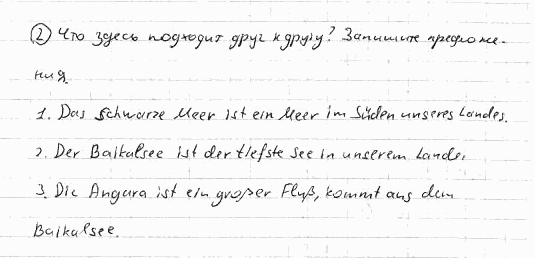 ② Что здесь подходит друг к другу? Запишите предложе-
ния.
1. Das schwarze Meer ist ein Meer im Süden unseres Landes.
2. Der Baikalsee ist der tiefste See in unserem Lande.
3. Die Angara ist ein großer Fluß, kommt aus dem
Baikalsee.